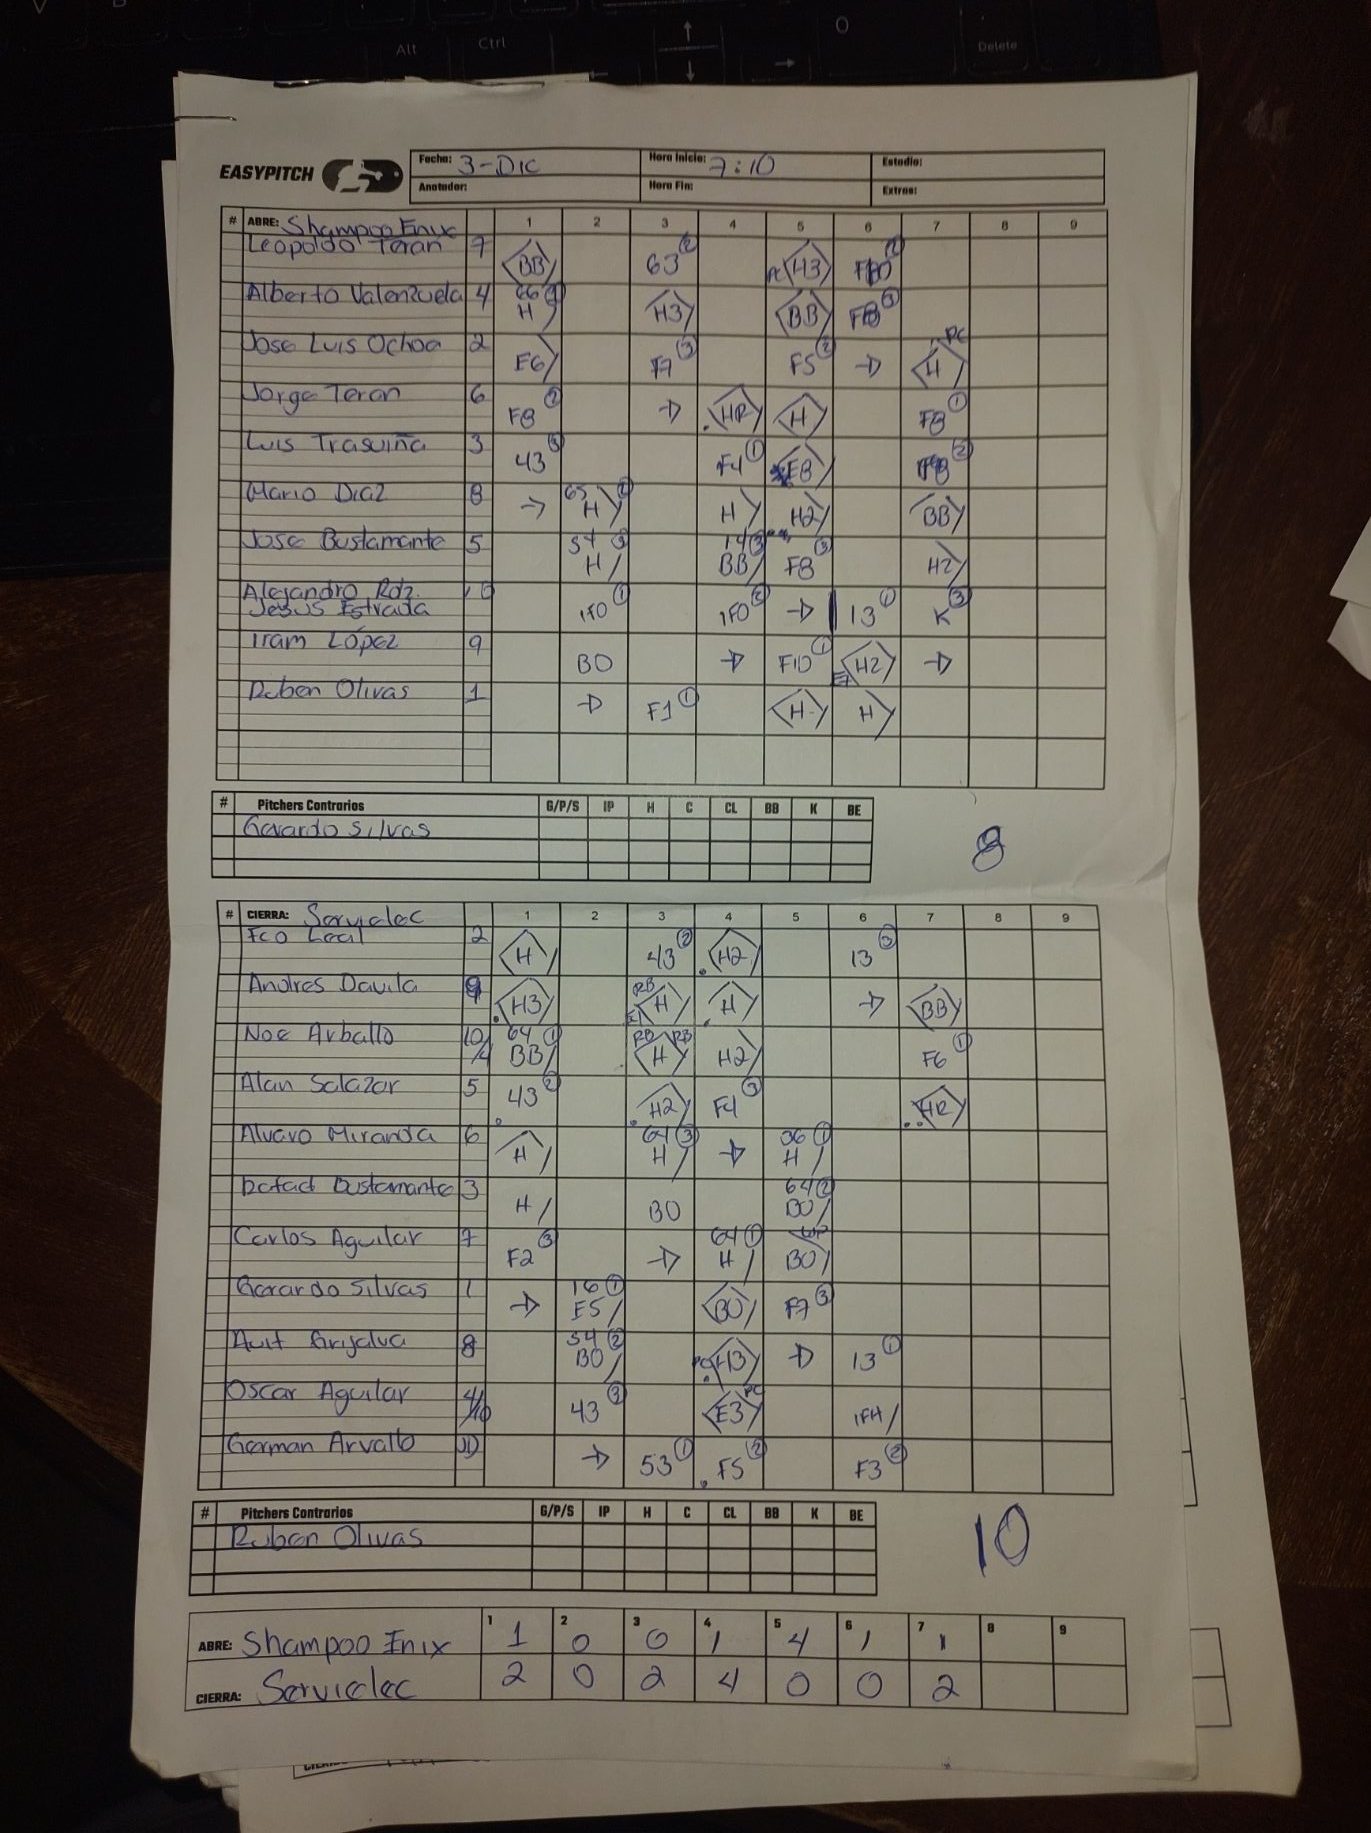 Alt Ctrl Delete
EASYPITCH
Fecha: 3-DIC Hora Inicio: 7:10 Estadio:
Anotador: Hora Fin: Extras:
# ABRE: Shampoo Enix 1 2 3 4 5 6 7 8 9
Leopoldo Teran 7 BB 63 2 H3
Alberto Valenzuela 4 66 1 H H3 BB F8 3
Jose Luis Ochoa 2 E6 F7 3 F5 2 → H RC
Jorge Teran 6 F8 2 → HR H F8 1
Luis Trasviña 3 43 3 F4 1 E8 F8 2
Mario Diaz 8 → 65 H H H2 BB
Jose Bustamante 5 54 3 H 14 3 BB F8 3 H2
Alejandro Rdz. 10
Jesus Estrada IFO 1 IFO 2 → 13 1 K 3
Iram López 9 BO → F10 1 H2 →
Ruben Olivas 1 → F1 1 H H
# Pitchers Contrarios G/P/S IP H C CL BB K BE
Gerardo Silvas
8
# CIERRA: Servielec 1 2 3 4 5 6 7 8 9
Fco Leal 2 H 43 2 H2 13 3
Andres Davila 9 H3 RB E1 H H → BB
Noe Arballo 10/4 64 1 BB RB RB H H2 F6 1
Alan Salazar 5 43 2 H2 F4 3 HR
Alvaro Miranda 6 H 64 3 H → 36 1 H
Rafael Bustamante 3 H BO 64 2 BO
Carlos Aguilar 7 F2 3 → 64 1 H WP BO
Gerardo Silvas 1 → 16 1 E5 BO F7 3
Grijalva 8 54 2 BO H3 → 13 1
Oscar Aguilar 4/10 43 3 E3 RC IFH
German Arvallo 10 → 53 1 F5 2 F3 2
# Pitchers Contrarios G/P/S IP H C CL BB K BE
Ruben Olivas
10
1 2 3 4 5 6 7 8 9
ABRE: Shampoo Enix 1 0 0 1 4 1 1
CIERRA: Servielec 2 0 2 4 0 0 2